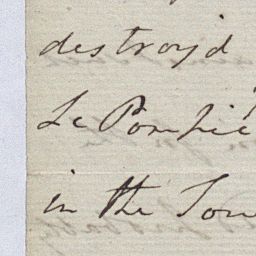 destroyd
Le Pompée
in the Tow